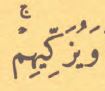 وَيُزَكِّيهِمْۚ